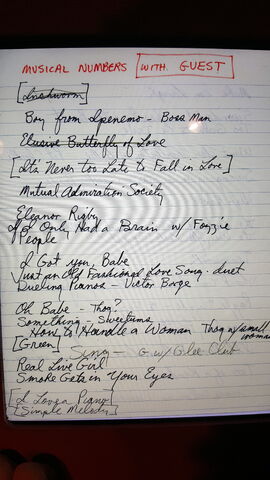 MUSICAL NUMBERS WITH GUEST
[Inchworm]
Boy from Ipenemo - Bossa Man
Elusive Butterfly of Love
[It's Never too Late to Fall in Love]
Mutual Admiration Society
Eleanor Rigby
If I Only Had a Brain w/ Fozzie
People
I Got you, Babe
Just an Old Fashioned Love Song - duet
Dueling Pianos - Victor Borge
Oh Babe - Thog?
Something - Sweetums
How to Handle a Woman Thog w/ small woman
[Green] Song - G w/ Glee Club
Real Live Girl
Smoke Gets in Your Eyes
[I Love a Piano]
[Simple Melody]